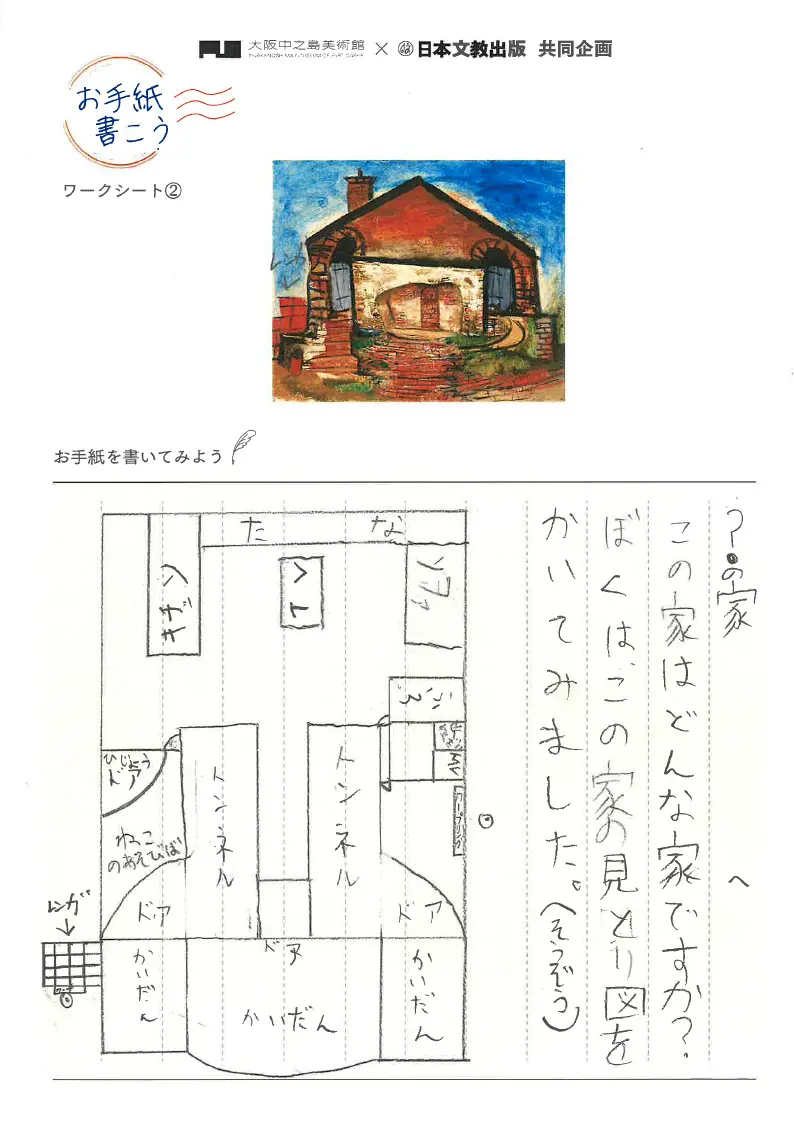 大阪中之島美術館 × 日本文教出版 共同企画
NAKANOSHIMA MUSEUM OF ART, OSAKA
お手紙
書こう
ワークシート②
レンガ
お手紙を書いてみよう
?の家
へ
この家はどんな家ですか?
ぼくは、この家の見とり図を
かいてみました。(そうぞう)
たな
キッチン
ソファ
ふろ
トンネル
トンネル
ひじょう
ドア
ねこ
のあそびば
ドア
ドア
ドア
レンガ
かいだん
かいだん
かいだん